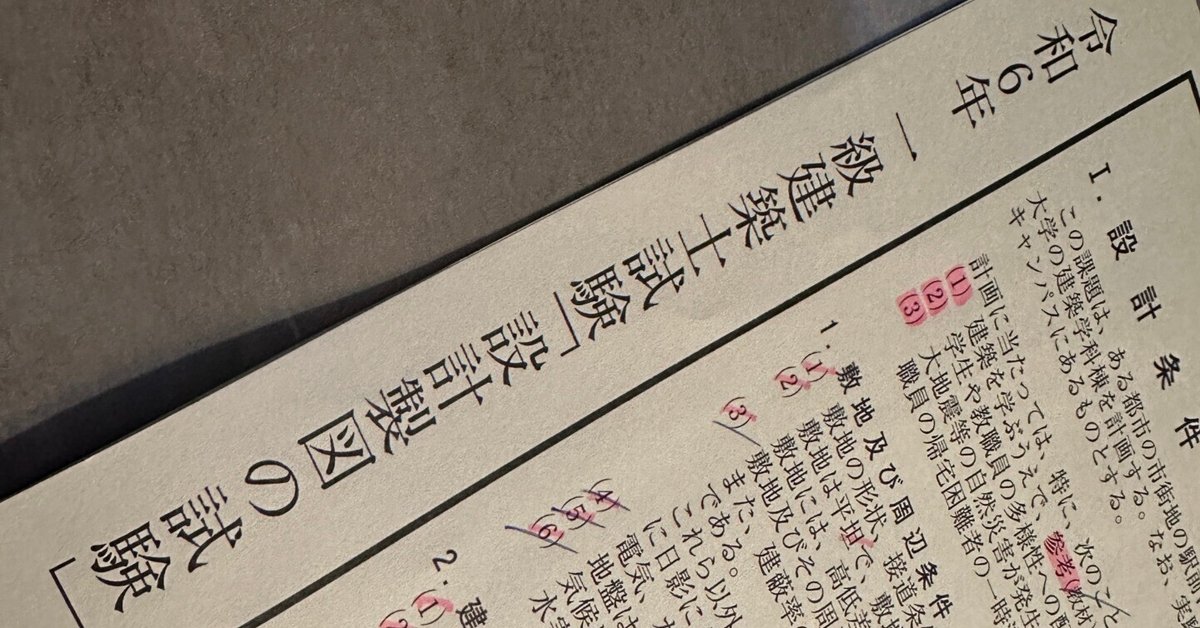 令和6年 一級建築士試験「設計製図の試験」
I. 設計条件
この課題は、ある都市の市街地の駅
大学の建築学科棟を計画する。なお、実
キャンパスにあるものとする。
計画に当たっては、特に、次のこと
(1) 建築を学ぶうえで、参考(教材
(2) 学生や教職員の多様性への配
(3) 大地震等の自然災害が発生
職員の帰宅困難者の一時
1. 敷地及び周辺条件
(1) 敷地の形状、接道条
(2) 敷地は平坦で、敷
(3) 敷地には、高低差
敷地及びその周
また、建蔽率
である。
これら以外
に日影に
(4) 電気、
(5) 地盤は
(6) 気候
2. 建
(1)